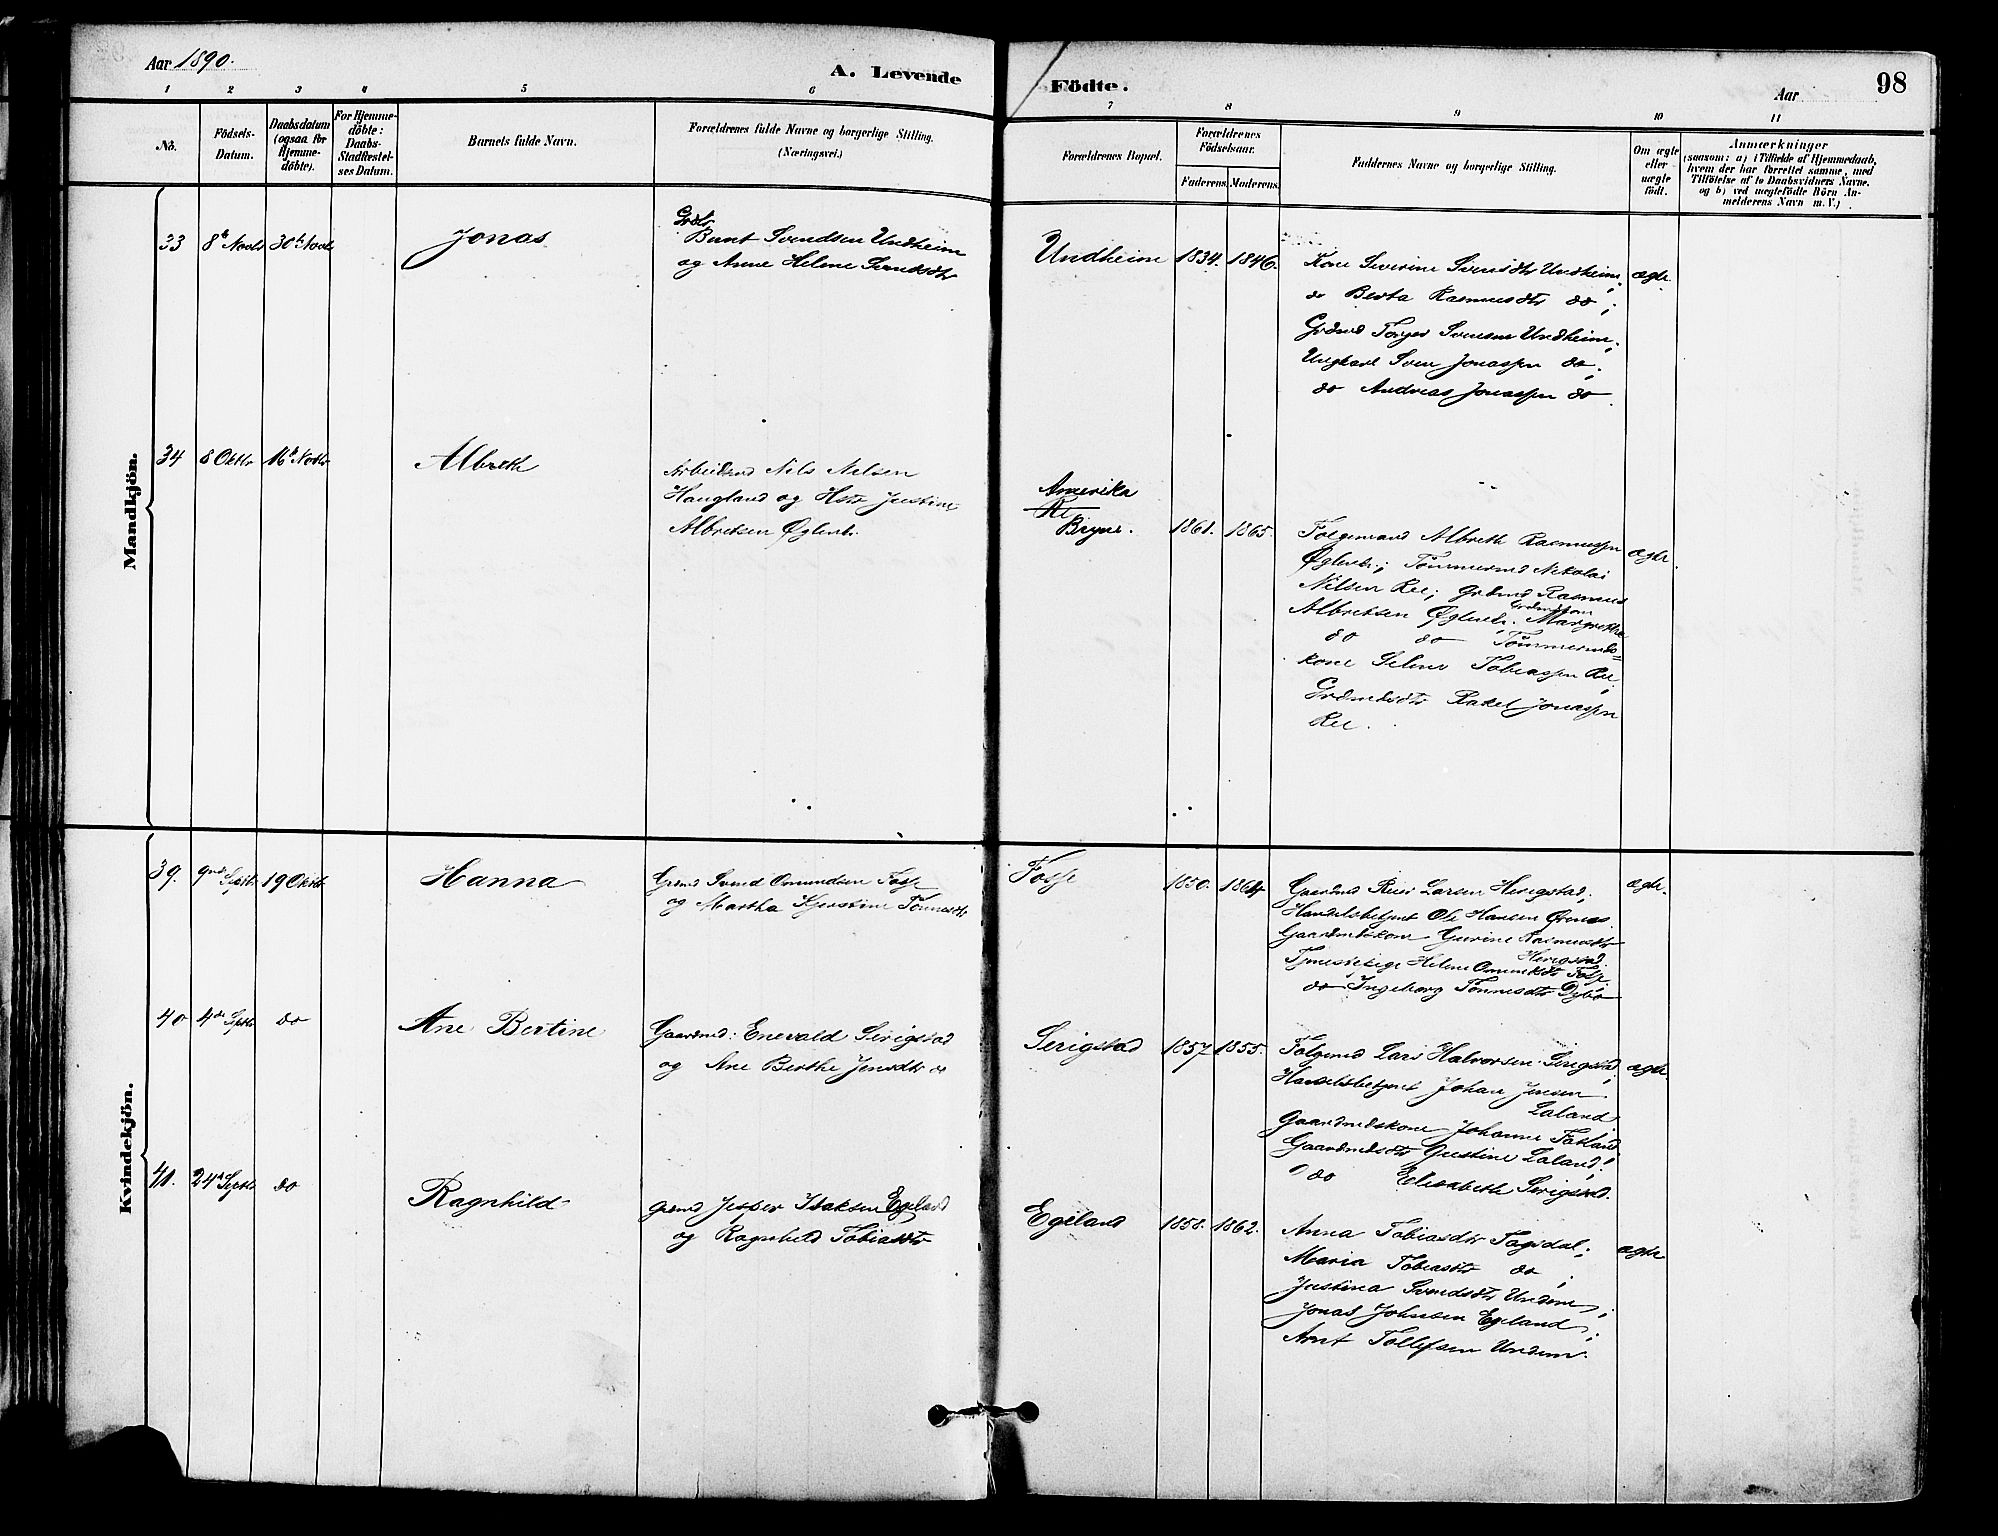 Aar 1890.
A. Levende
Födte.
Aar
98
1 2 3 4 5 6 7 8 9 10 11
No.
Födsels-Datum.
Daabsdatum (ogsaa for Hjemmedöbte).
For Hjemmedöbte: Daabs-Stadfæstelses Datum.
Barnets fulde Navn.
Forældrenes fulde Navne og borgerlige Stilling.
(Næringsvei.)
Forældrenes Bopæl.
Forældrenes Födselsaar.
Faderens. Moderens.
Faddernes Navne og borgerlige Stilling.
Om ægte eller uægte födt.
Anmærkninger
(saasom: a) i Tilfælde af Hjemmedaab,
hvem der har forrettet samme, med
Tilföielse af to Daabsvidners Navne,
og b) ved uægtefödte Börn An-
melderens Navn m. V.)
Mandkjön.
33 8de Novbr 30te Novbr
Jonas
Bernt Svendsen Undheim
og Anne Helene Svendsdtr
Undheim 1834. 1846.
Kone Severine Svensdtr Undheim,
do Berta Rasmusdtr do;
Grdmd Torger Svensen Undheim,
Ungkarl Sven Jonassen do,
do Andreas Jonassen do.
ægte.
34 8 Oktbr 16de Novbr
Albreth
Arbeidsmd Nils Nilsen
Haugland og Hstr Justine
Albretsen Øgland.
Amerika
Re
Bryne. 1861. 1865.
Folgemand Albreth Rasmussen
Tömmermd Nikolai
Nilsen Ree; Grdmd Rasmus
Albretsen Margrethe
do do Tömmermds-
kone Selene Tobiassen Re,
Grdmdsdtr Rakel Jonassen
Ree.
ægte.
Kvindekjön.
39. 9nde Septbr 19 Oktbr
Hanna
Grdmd Svend Omundsen Fosse
og Martha Kjerstine Tönnesdtr
Fosse 1850. 1864
Gaardmd Reier Larsen Herigstad,
Handelsbetjent Ole Hansen
Gaardmdskone Gurine Rasmusdtr
Herigstad
Tjenestepige Helene Omundsdtr Fosse
do Ingeborg Tönnesdtr
ægte.
40 4de Septbr do
Ane Bertine
Gaardmd: Enevald Serigstad
og Ane Berthe Jensdtr do
Serigstad 1857 1855.
Folgemd Lars Halvorsen Serigstad,
Handelsbetjent Johan Jensen
Laland
Gaardmdskone Johanne Fotland
Gaardmdsdtr Gustine Laland,
do Elisabeth Serigstad.
ægte.
41. 24de Septbr do
Ragnhild
Grdmd Jesper Isaksen Egeland
og Ragnhild Tobiasdtr
Egeland 1858. 1862.
Anna Tobiasdtr Tagsdal,
Maria Tobiasdtr do,
Justina Svendsdtr Undem,
Jonas Johnsen Egeland,
Arnt Tollefsen Undem.
ægte